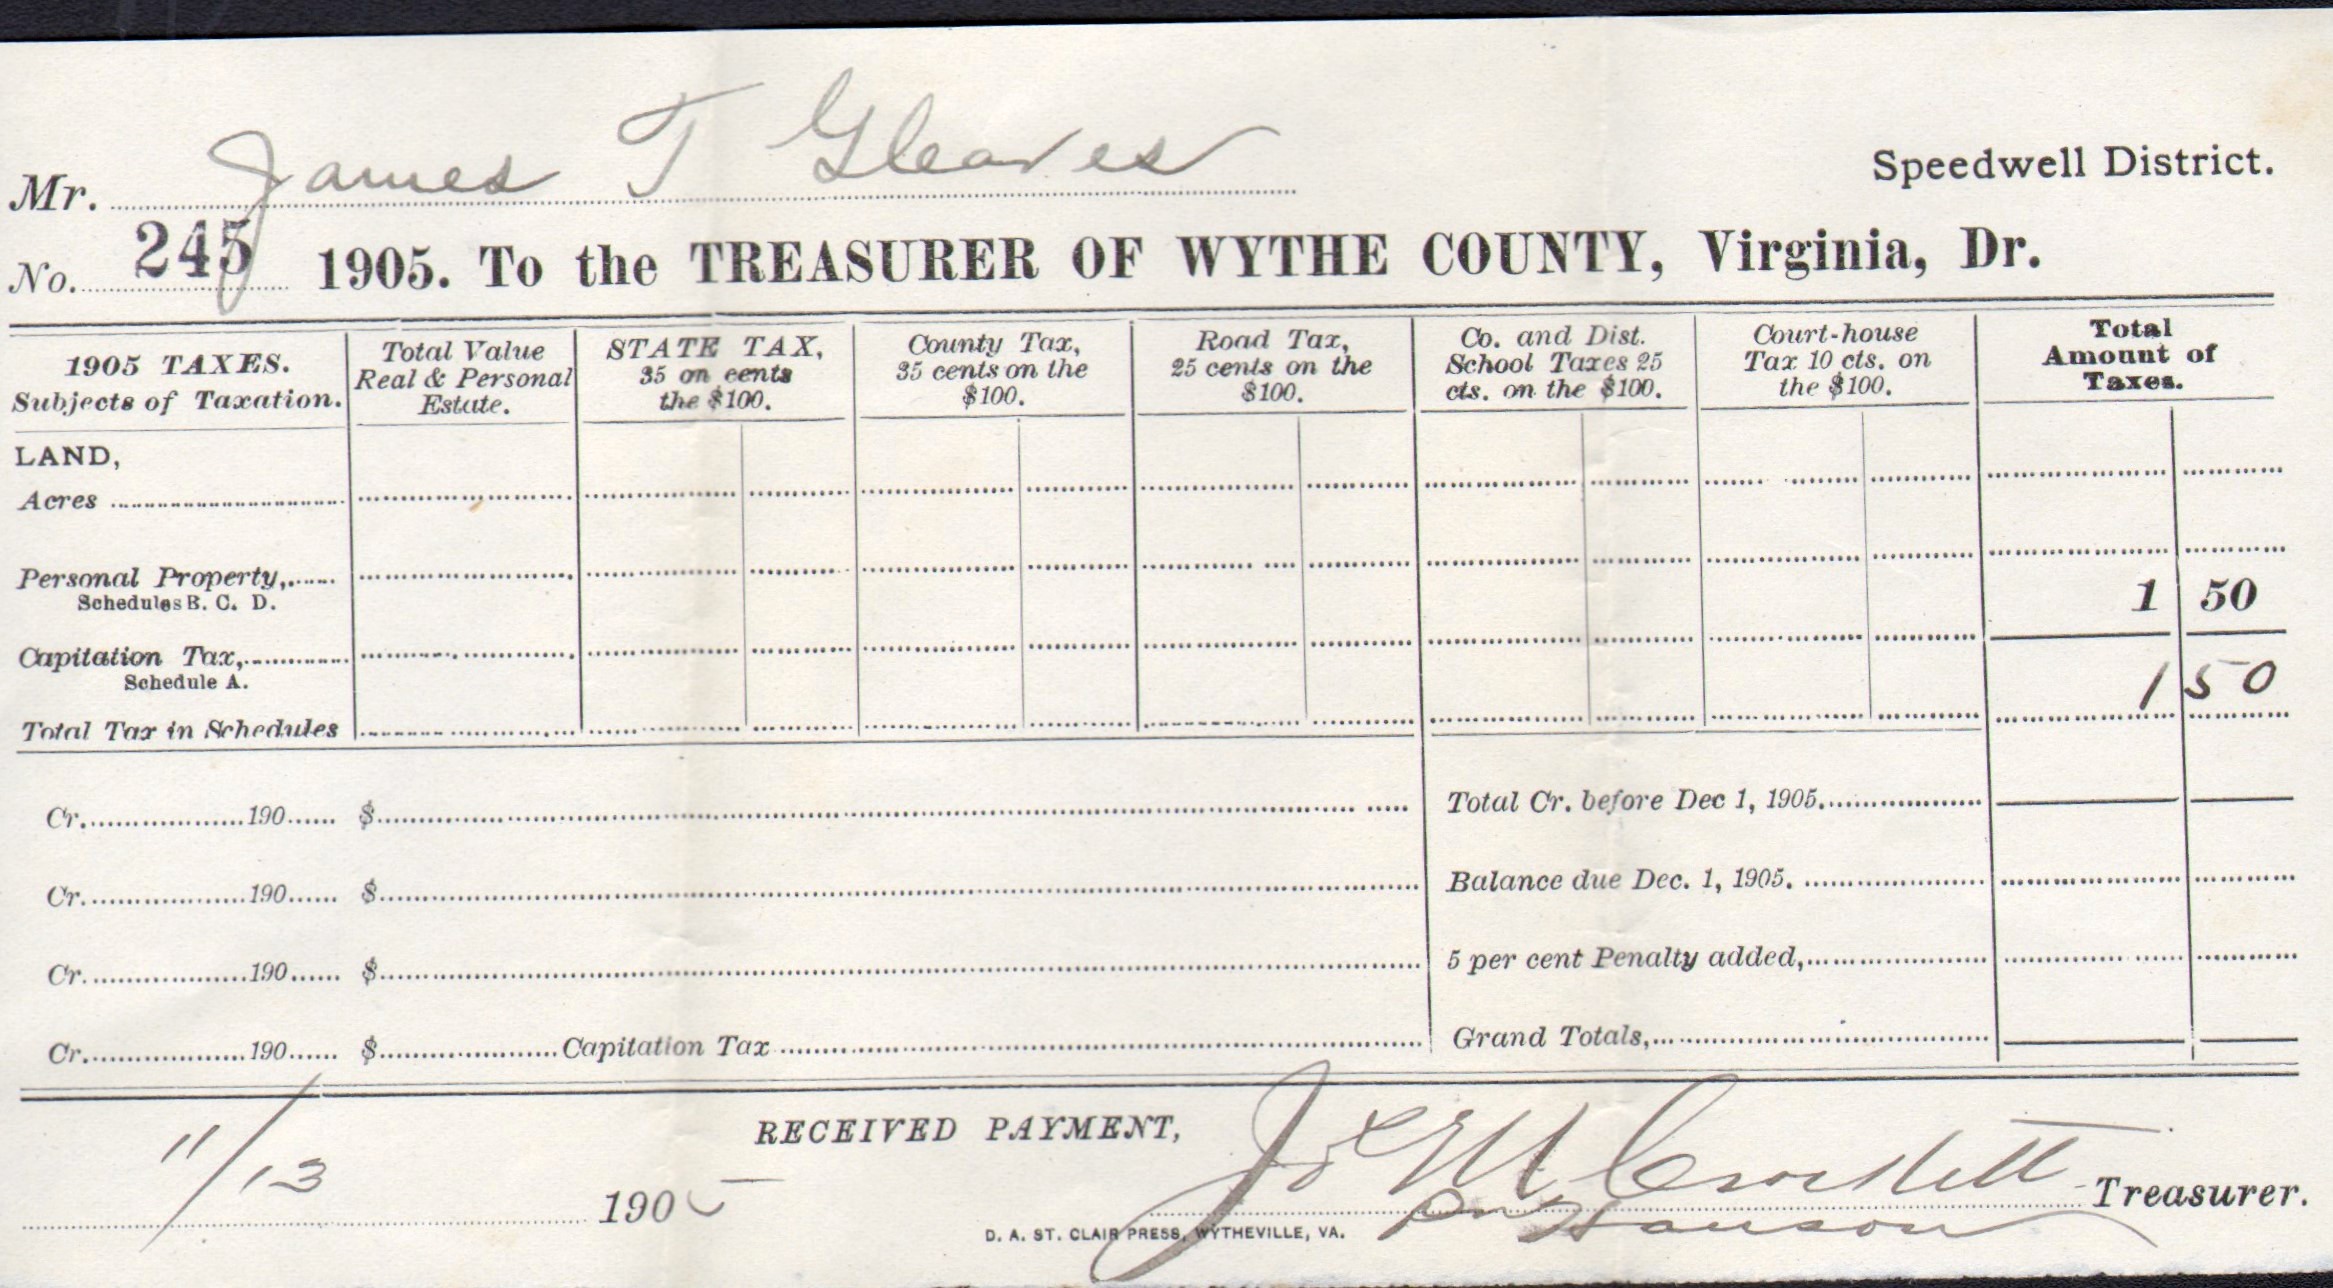 Mr. James T Gleaves
Speedwell District.
No. 245 1905. To the TREASURER OF WYTHE COUNTY, Virginia, Dr.
1905 TAXES.
Subjects of Taxation.
Total Value
Real & Personal
Estate.
STATE TAX,
35 on cents
the $100.
County Tax,
35 cents on the
$100.
Road Tax,
25 cents on the
$100.
Co. and Dist.
School Taxes 25
cts. on the $100.
Court-house
Tax 10 cts. on
the $100.
Total
Amount of
Taxes.
LAND,
Acres
Personal Property,
Schedules B. C. D.
1 50
Capitation Tax,
Schedule A.
1 50
Total Tax in Schedules
Cr. 190 $
Total Cr. before Dec 1, 1905.
Cr. 190 $
Balance due Dec. 1, 1905.
Cr. 190 $
5 per cent Penalty added,
Cr. 190 $ Capitation Tax
Grand Totals,
RECEIVED PAYMENT,
11/13 1905
Crockett Treasurer.
D. A. ST. CLAIR PRESS, WYTHEVILLE, VA.